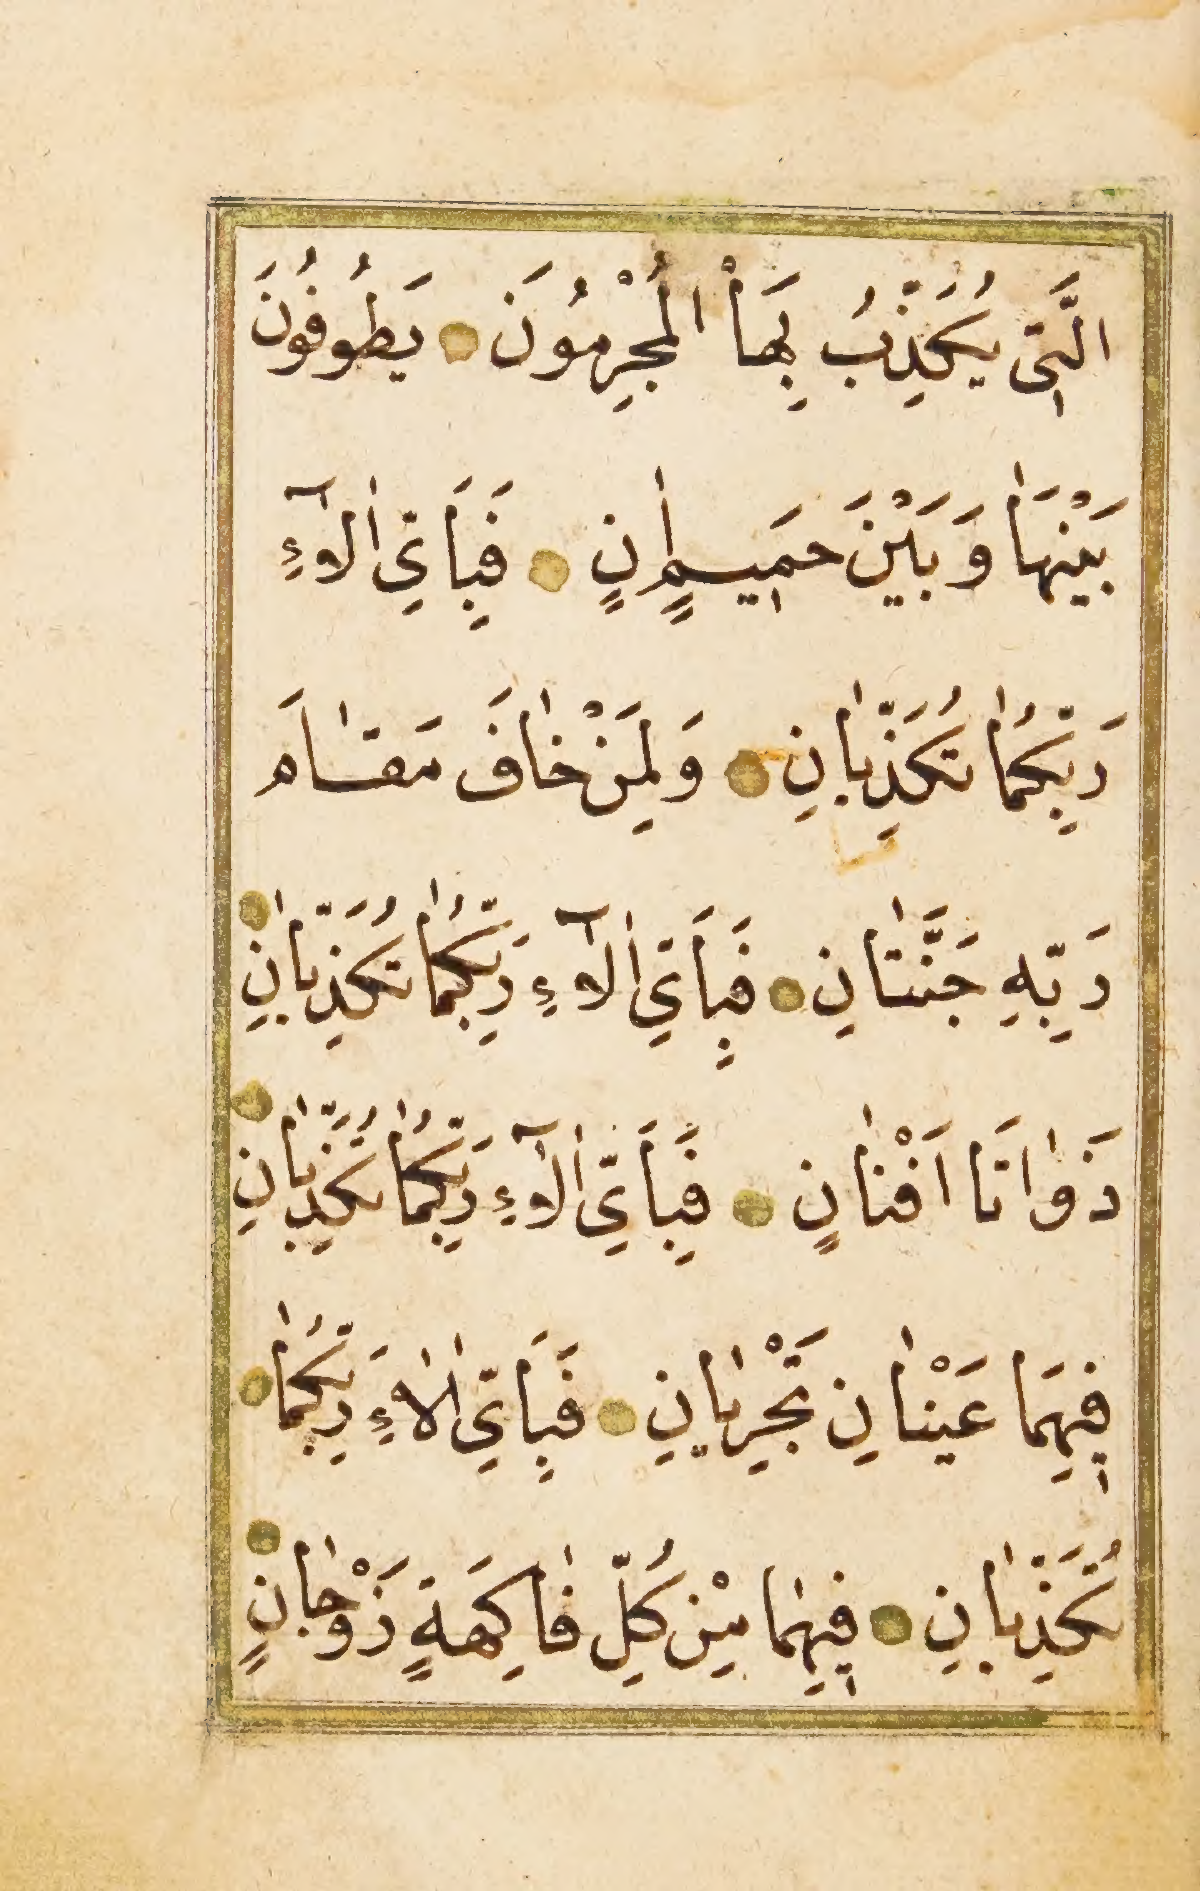 الَّتٖى يُكَذِّبُ بِهَاْ الْمُجْرِمُونَ ۝ يَطُوفُونَ
بَيْنَهَا وَبَيْنَ حَمٖيمٍ اٰنٍ ۝ فَبِاَىِّ اٰلَٓاءِ
رَبِّكُمَا تُكَذِّبَانِ ۝ وَلِمَنْ خَافَ مَقَامَ
رَبِّهٖ جَنَّتَانِ ۝ فَبِاَىِّ اٰلَٓاءِ رَبِّكُمَا تُكَذِّبَانِ ۝
ذَوَاتَا اَفْنَانٍ ۝ فَبِاَىِّ اٰلَٓاءِ رَبِّكُمَا تُكَذِّبَانِ ۝
فٖيهِمَا عَيْنَانِ تَجْرِيَانِ ۝ فَبِاَىِّ اٰلَاءِ رَبِّكُمَا ۝
تُكَذِّبَانِ ۝ فٖيهِمَا مِنْ كُلِّ فَاكِهَةٍ زَوْجَانٍ ۝